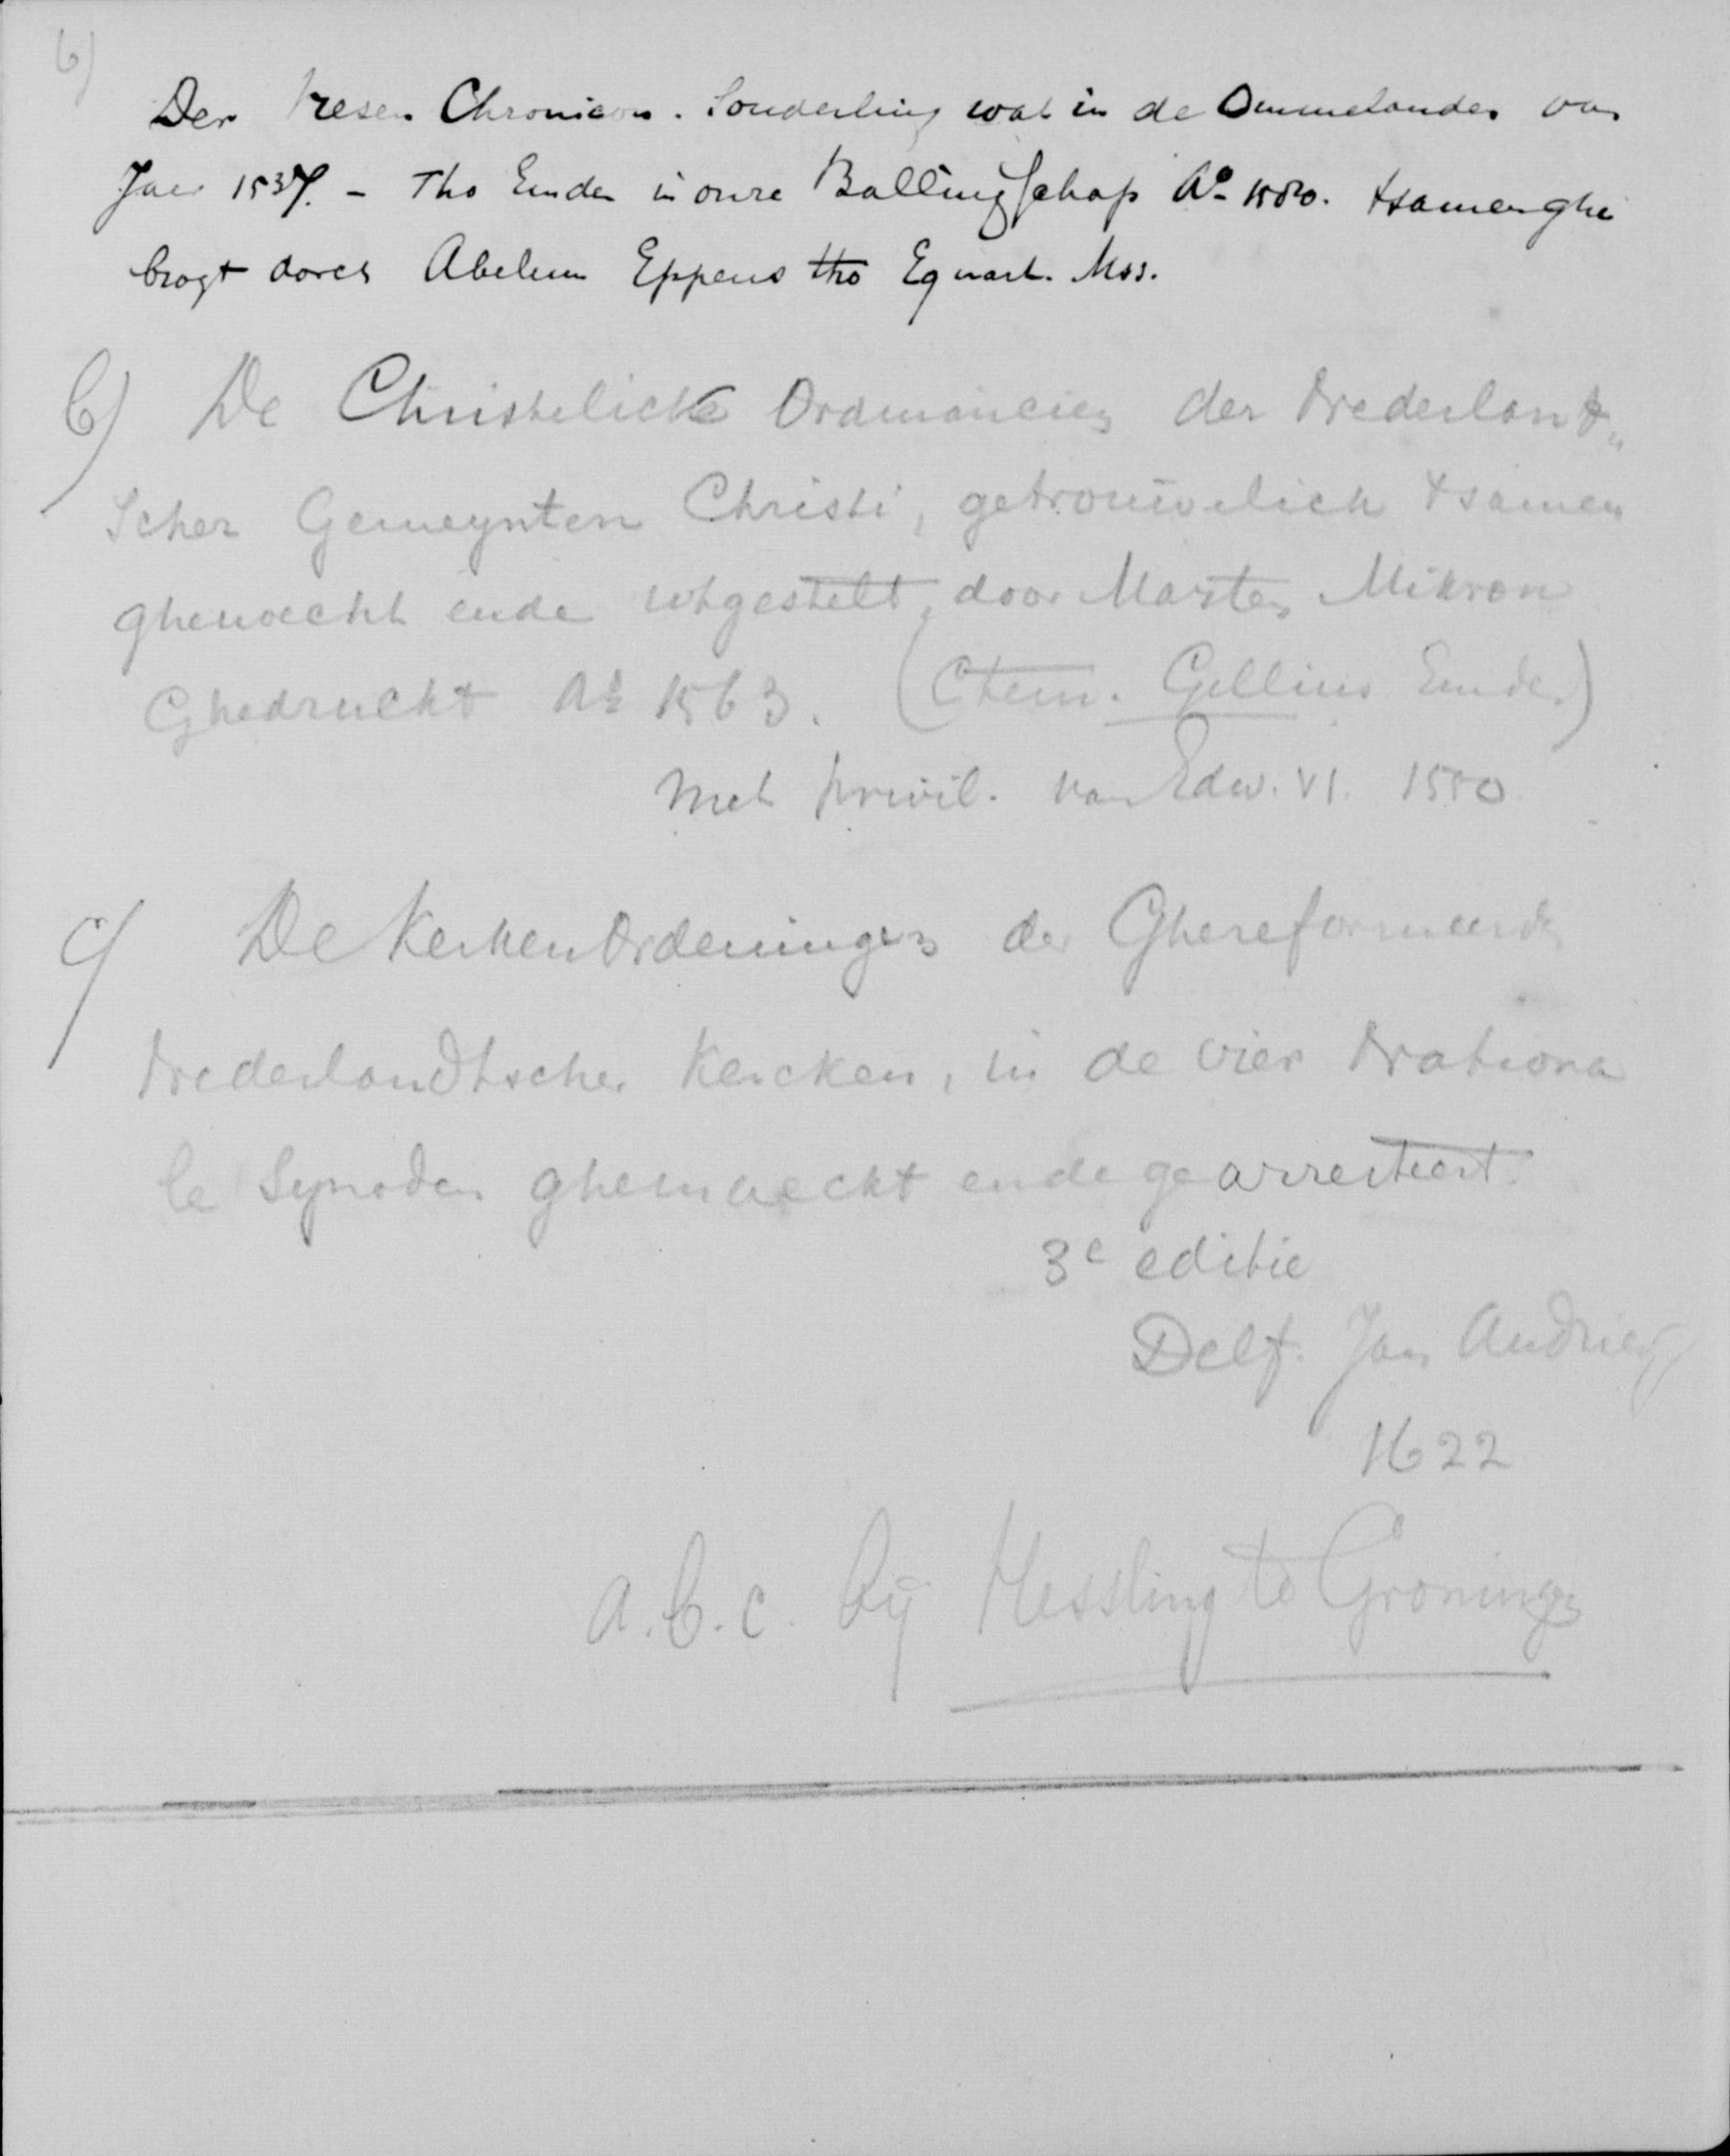 6)
Der Vresen Chronicon. Sonderling wat in de Ommelanden van
Jaer 1537. - Tho Emden in onse Ballingschap Ao 1580. tsamenghe
brogt dorch Abelum Eppens tho Equart. Mss.
b) De Christelicke Ordinancien der Nederlant„
scher Gemeynten Christi, getrouwelick tsamen
ghemaeckt ende utgestelt, door Marten Mikron
Ghedruckt Ao 1563. (Ctem. Gellius Emden)
Met privil. van Edw. VI. 1550
c) De Kerken Ordeningen der Ghereformeerde
Nederlandtscher Kercken, in de vier Nationa
le Synoden ghemaeckt ende gearresteert.
3e editie
Delf. Jan Andriesz
1622
a. b. c. bij Hessling te Groningen